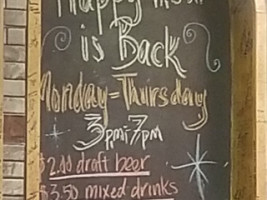 Happy Hour
is Back
Monday - Thursday
3pm - 7pm
$2.00 draft beer
$3.50 mixed drinks